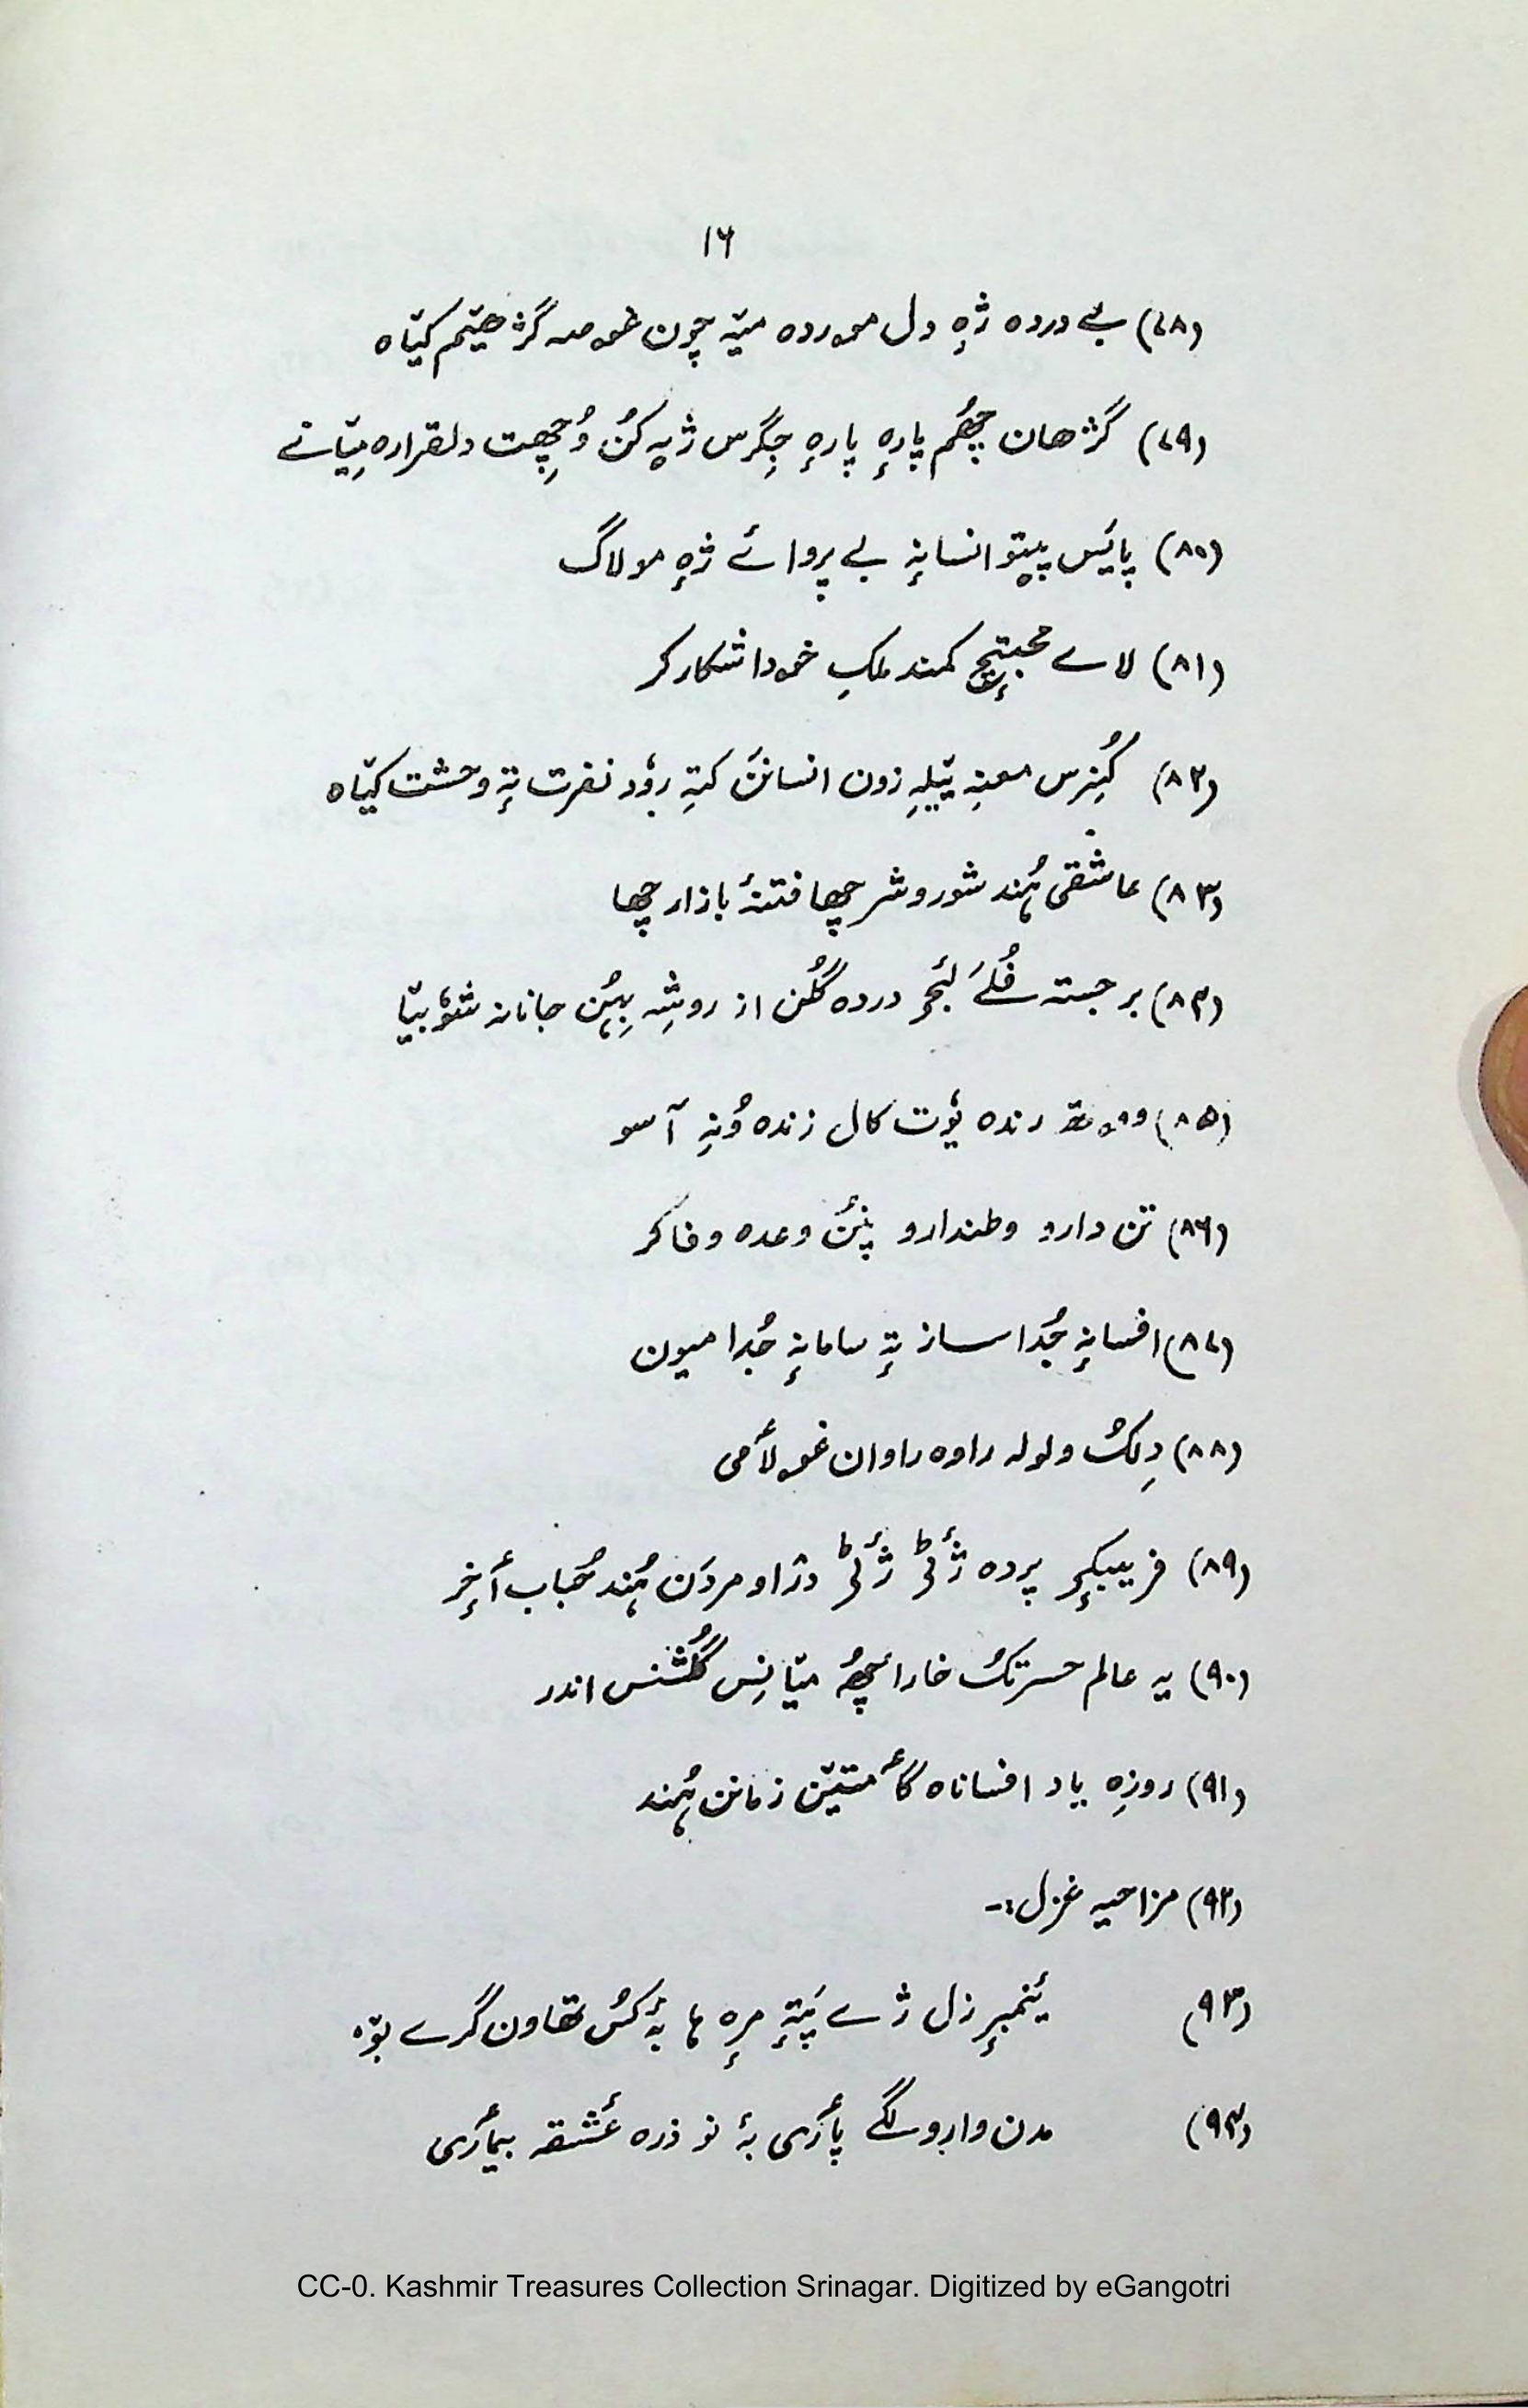 ۱۶
(۷۸) بے دردہ ژٕہ دل مودردہ میٚہ چون غمہ گژھیٚم کیٚاہ
(۷۹) گژھان چھُم پارٕہ پارٕہ جِگرس ژیہ کُن وُچھِت دلقرارہ میٚانے
(۸۰) پایَس پیتو انسانہٕ بے پروائے ژٕہ مو لاگ
(۸۱) لاے محبتٕچ کمند ملکِ خودا شکار کر
(۸۲) کُنِرس معنہِ یٚیلہِ زون انسانن کتہِ رووٗد نفرت تہٕ وحشت کیٚاہ
(۸۳) عاشقی ہُند شوروشر چھا فتنۂ بازار چھا
(۸۴) برجستہ پھُلَے لٔجٕ دردہ گُلن از روشہِ بِہُن جانانہ شوٗبیٚا
(۸۵) رندہ یوٗت کال زندہ وُنہِ آسو
(۸۶) تن دارو وطندارو پنُن وعدہ وفا کر
(۸۷) افسانہٕ جُدا ساز تہٕ سامانہٕ جُدا میون
(۸۸) دِلکُ ولولہ راوہ راوان غولأمی
(۸۹) فریبکٕو پردہ ژٔٹی ژٔٹی دراو مردَن ہُند حُباب أخٕر
(۹۰) یہ عالم حسرتکُ خارا چھُہ میٚانِس گُلشنس اندر
(۹۱) روزِہ یاد افساناہ گأمتیٚن زمانن ہُند
(۹۲) مزاحیہ غزل:-
(۹۳) یٔنمبرٕزل ژے پَتہٕ مرٕہ ہا بۂ کُس تھاون گرے بوٚہ
(۹۴) مدن وارو لگے پأری بۂ نو ذرہ عٔشقہ بیمأری
CC-0. Kashmir Treasures Collection Srinagar. Digitized by eGangotri